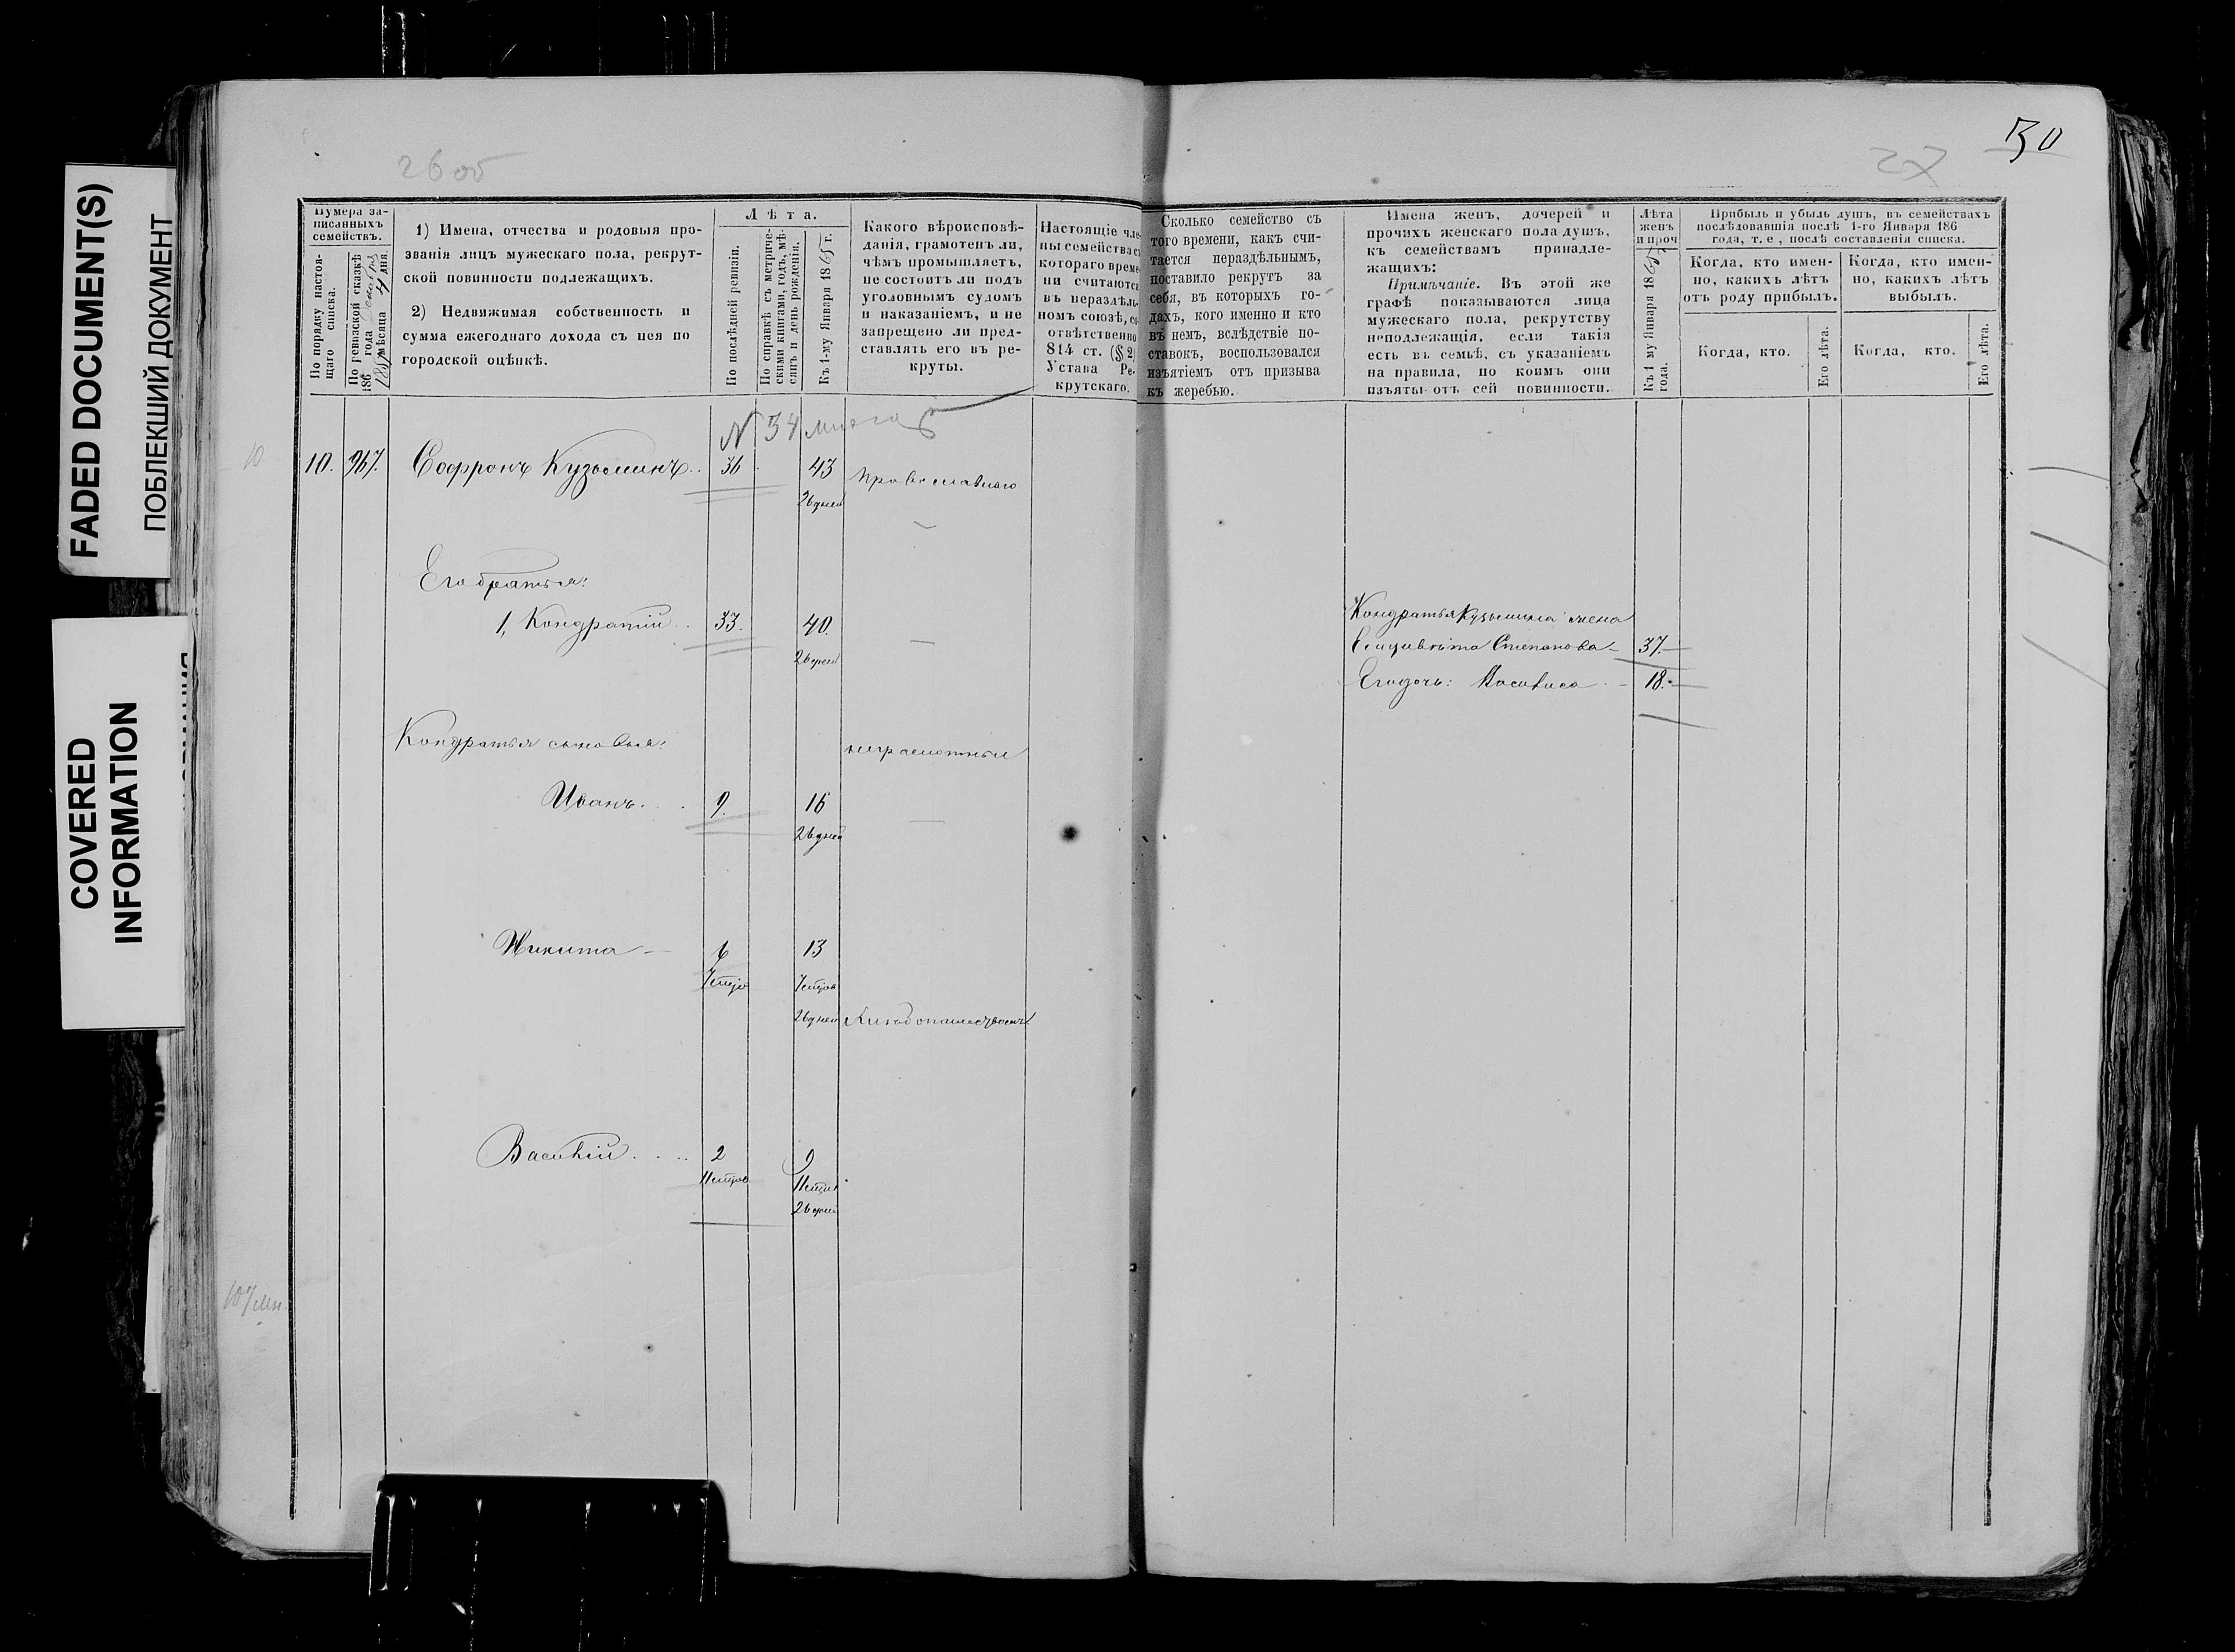 FADED DOCUMENT(S)
ПОБЛЕКШИЙ ДОКУМЕНТ
COVERED
INFORMATION
26 об
27
30
Нумера за-
писанныхъ
семействъ.
По порядку настоя-
щаго списка.
По ревизской сказкѣ
186 года
мѣсяца 4 дня.
1) Имена, отчества и родовыя про-
званія лицъ мужескаго пола, рекрут-
ской повинности подлежащихъ.
2) Недвижимая собственность и
сумма ежегоднаго дохода съ нея по
городской оцѣнкѣ.
Лѣта.
По послѣдней ревизіи.
По справкѣ съ метриче-
скими книгами, годъ, мѣ-
сяцъ и день рожденія.
Къ 1-му Января 1865 г.
Какого вѣроисповѣ-
данія, грамотенъ ли,
чѣмъ промышляетъ,
не состоитъ ли подъ
уголовнымъ судомъ
и наказаніемъ, и не
запрещено ли пред-
ставлять его въ ре-
круты.
Настоящіе чле-
ны семейства съ
котораго време-
ни считаются
въ нераздѣль-
номъ союзѣ, со-
отвѣтственно
814 ст. (§ 2)
Устава Ре-
крутскаго.
Сколько семейство съ
того времени, какъ счи-
тается нераздѣльнымъ,
поставило рекрутъ за
себя, въ которыхъ го-
дахъ, кого именно и кто
въ немъ, вслѣдствіе по-
ставокъ, воспользовался
изъятіемъ отъ призыва
къ жеребью.
Имена женъ, дочерей и
прочихъ женскаго пола душъ,
къ семействамъ принадле-
жащихъ:
Примѣчаніе. Въ этой же
графѣ показываются лица
мужескаго пола, рекрутству
неподлежащія, если такія
есть въ семьѣ, съ указаніемъ
на правила, по коимъ они
изъяты отъ сей повинности.
Лѣта
женъ
и проч
Къ 1 му Января 1865
года.
Прибыль и убыль душъ, въ семействахъ
послѣдовавшія послѣ 1-го Января 186
года, т. е, послѣ составленія списка.
Когда, кто имен-
но, какихъ лѣтъ
отъ роду прибылъ.
Когда, кто имен-
но, какихъ лѣтъ
выбылъ.
Когда, кто.
Его лѣта.
Когда, кто.
Его лѣта.
N 34
10
10. 967. Софронъ Кузьминъ 36 43 Православнаго
26 дней
Его братья:
1, Кондратій 33. 40.
26 дней
Кондратья Кузьмина жена
Елизавѣта Степанова 37.
Его дочь: Василиса 18.
Кондратья сыновья: неграмотные
Иванъ 9. 16
26 дней
Никита 6 13
7 мцов 7 мцов
26 дней Хлѣбопашествомъ
Василій 2 9
11 мцов 11 мцов
26 дней